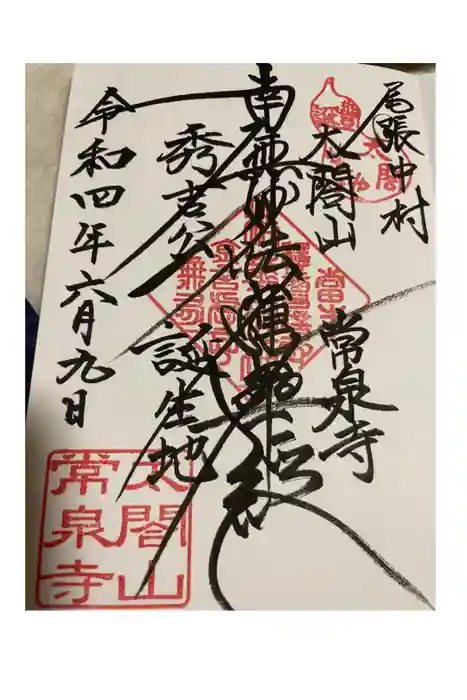 尾張中村
太閤山
常泉寺
南無妙法蓮華経
秀吉公
誕生地
令和四年六月九日
太閤山
常泉寺